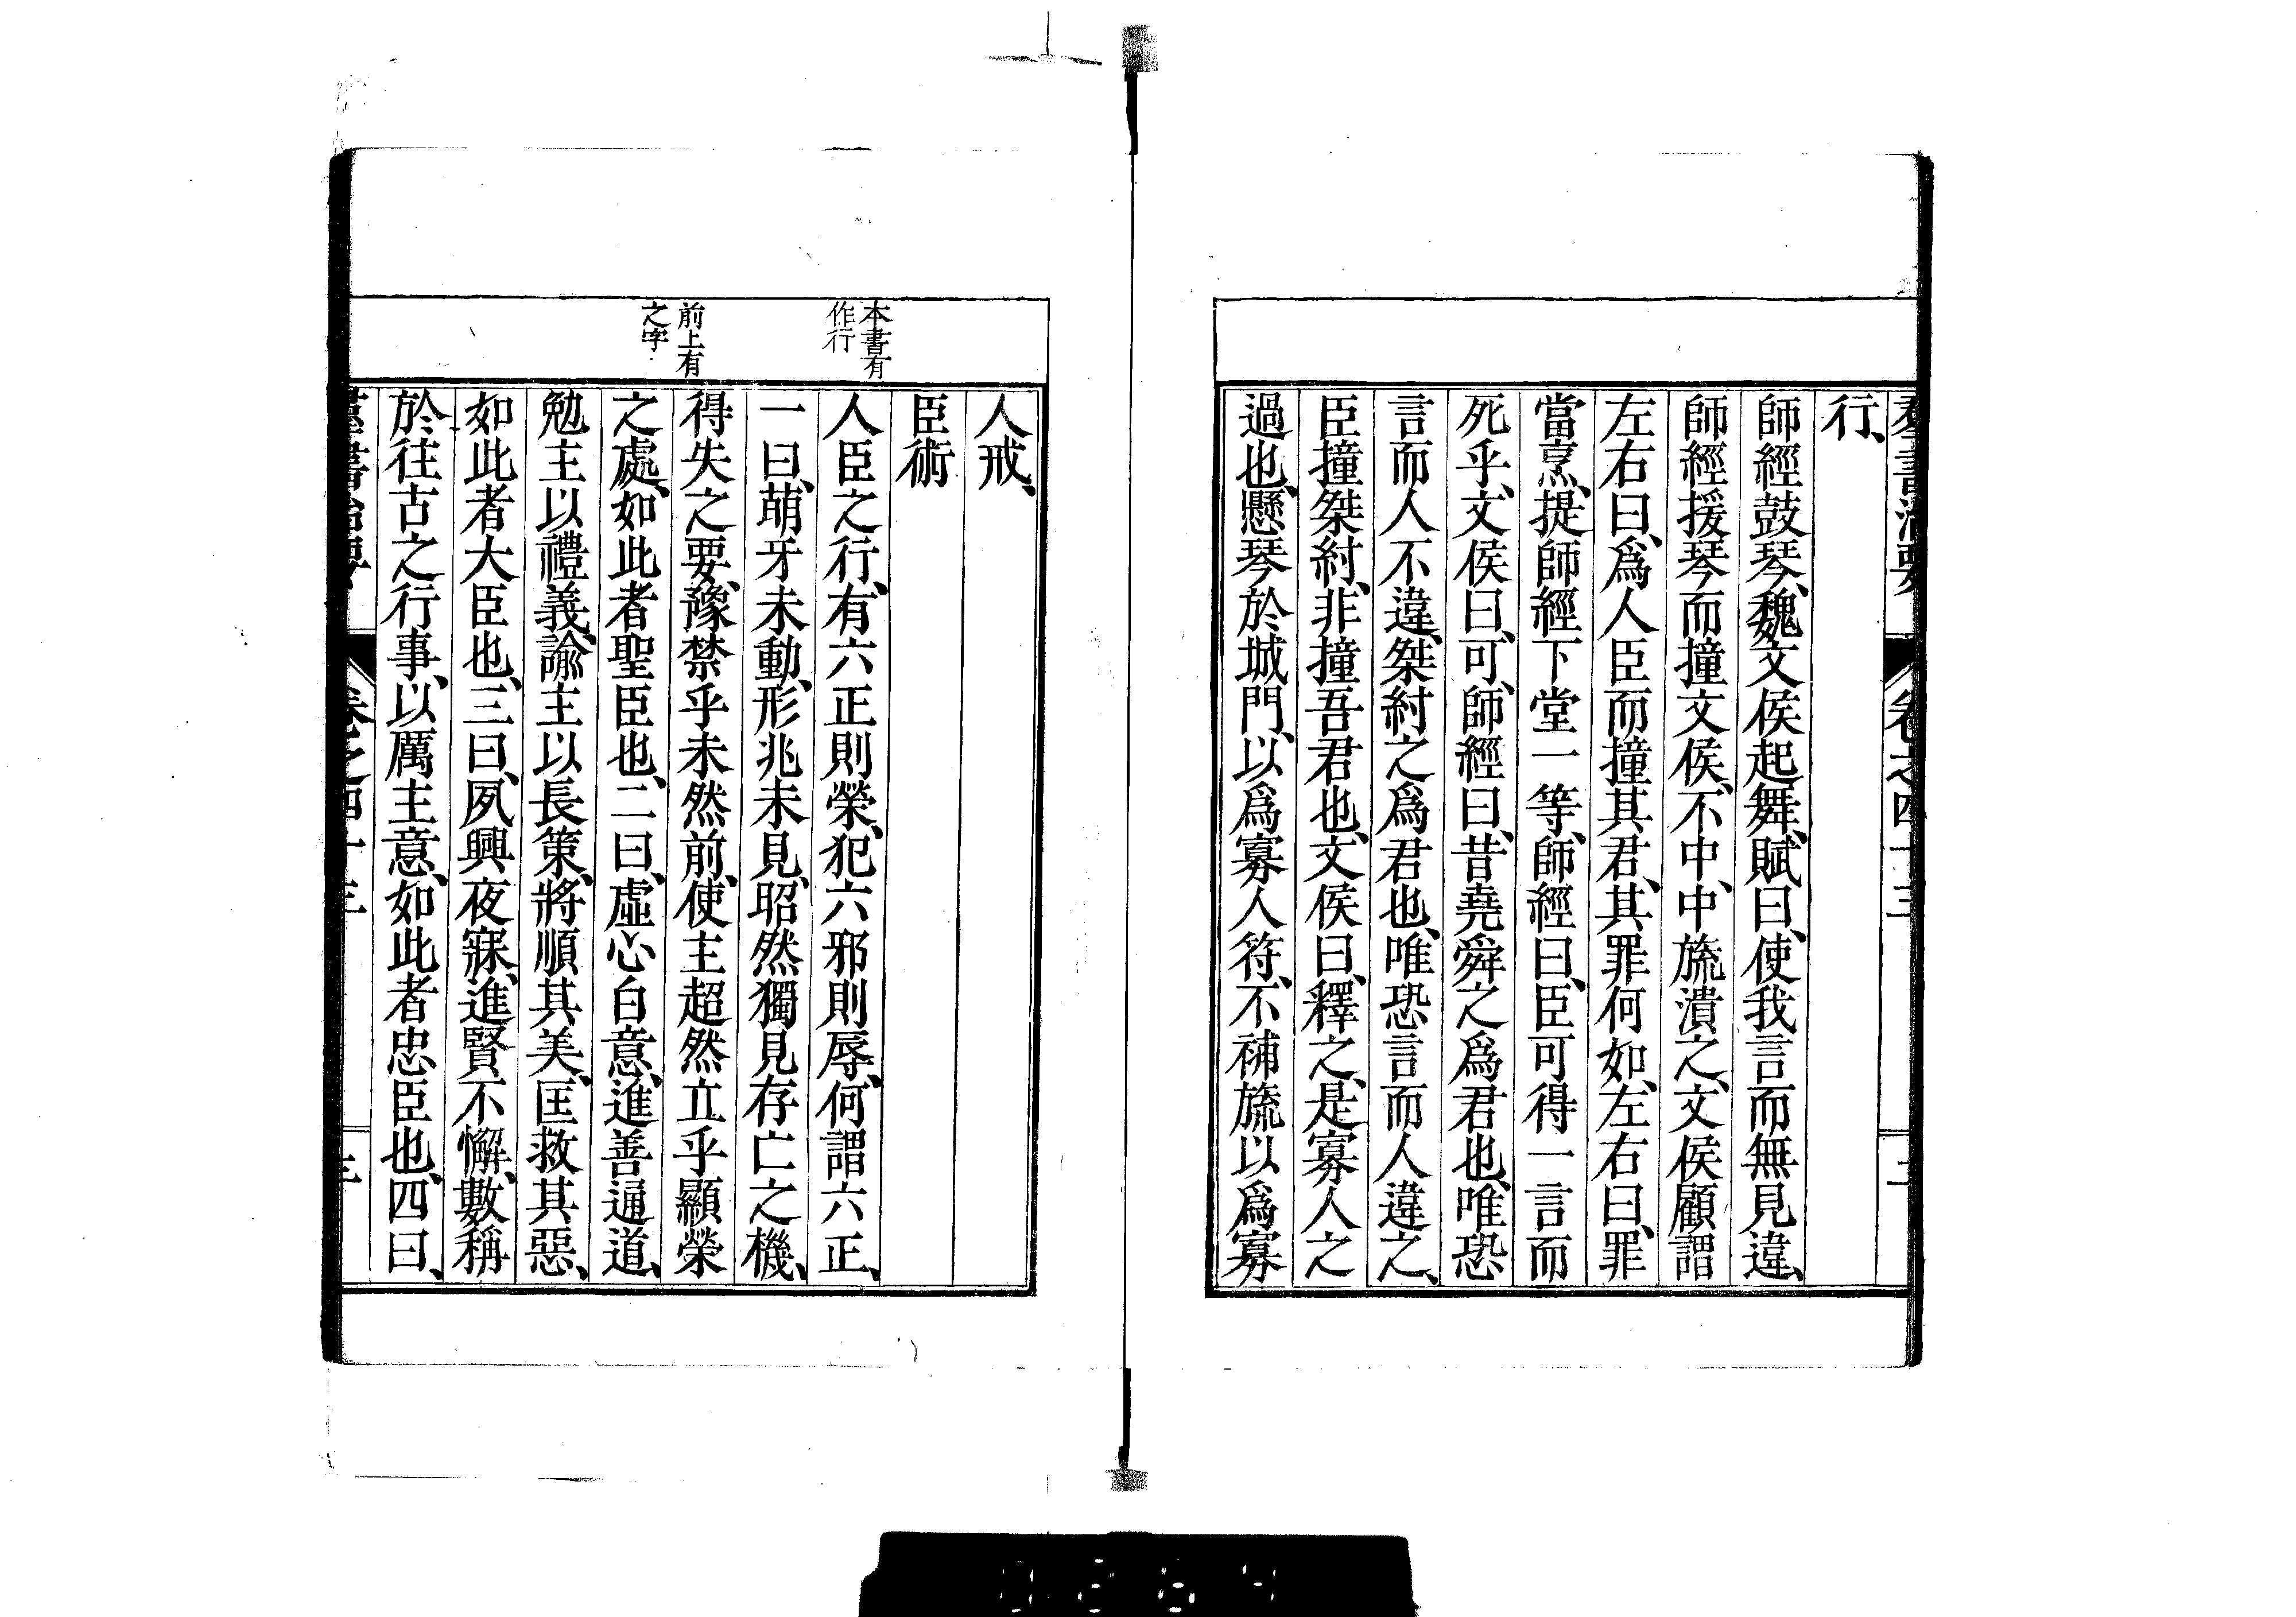 羣書治要 卷之四十三 三
行、
師經鼓琴、魏文侯起舞、賦曰、使我言而無見違、
師經援琴而撞文侯、不中、中旒潰之、文侯顧謂
左右曰、爲人臣而撞其君、其罪何如、左右曰、罪
當烹、提師經下堂一等、師經曰、臣可得一言而
死乎、文侯曰、可、師經曰、昔堯舜之爲君也、唯恐
言而人不違、桀紂之爲君也、唯恐言而人違之、
臣撞桀紂、非撞吾君也、文侯曰、釋之、是寡人之
過也、懸琴於城門、以爲寡人符、不補旒以爲寡
人戒、
臣術
本書有
作行
人臣之行、有六正則榮、犯六邪則辱、何謂六正、
一曰、萌牙未動、形兆未見、昭然獨見存亡之機、
前上有
之字
得失之要、豫禁乎未然前、使主超然立乎顯榮
之處、如此者聖臣也、二曰、虛心白意、進善通道、
勉主以禮義、諭主以長策、將順其美、匡救其惡、
如此者大臣也、三曰、夙興夜寐、進賢不懈、數稱
於往古之行事、以厲主意、如此者忠臣也、四曰、
羣書治要 卷之四十三 三